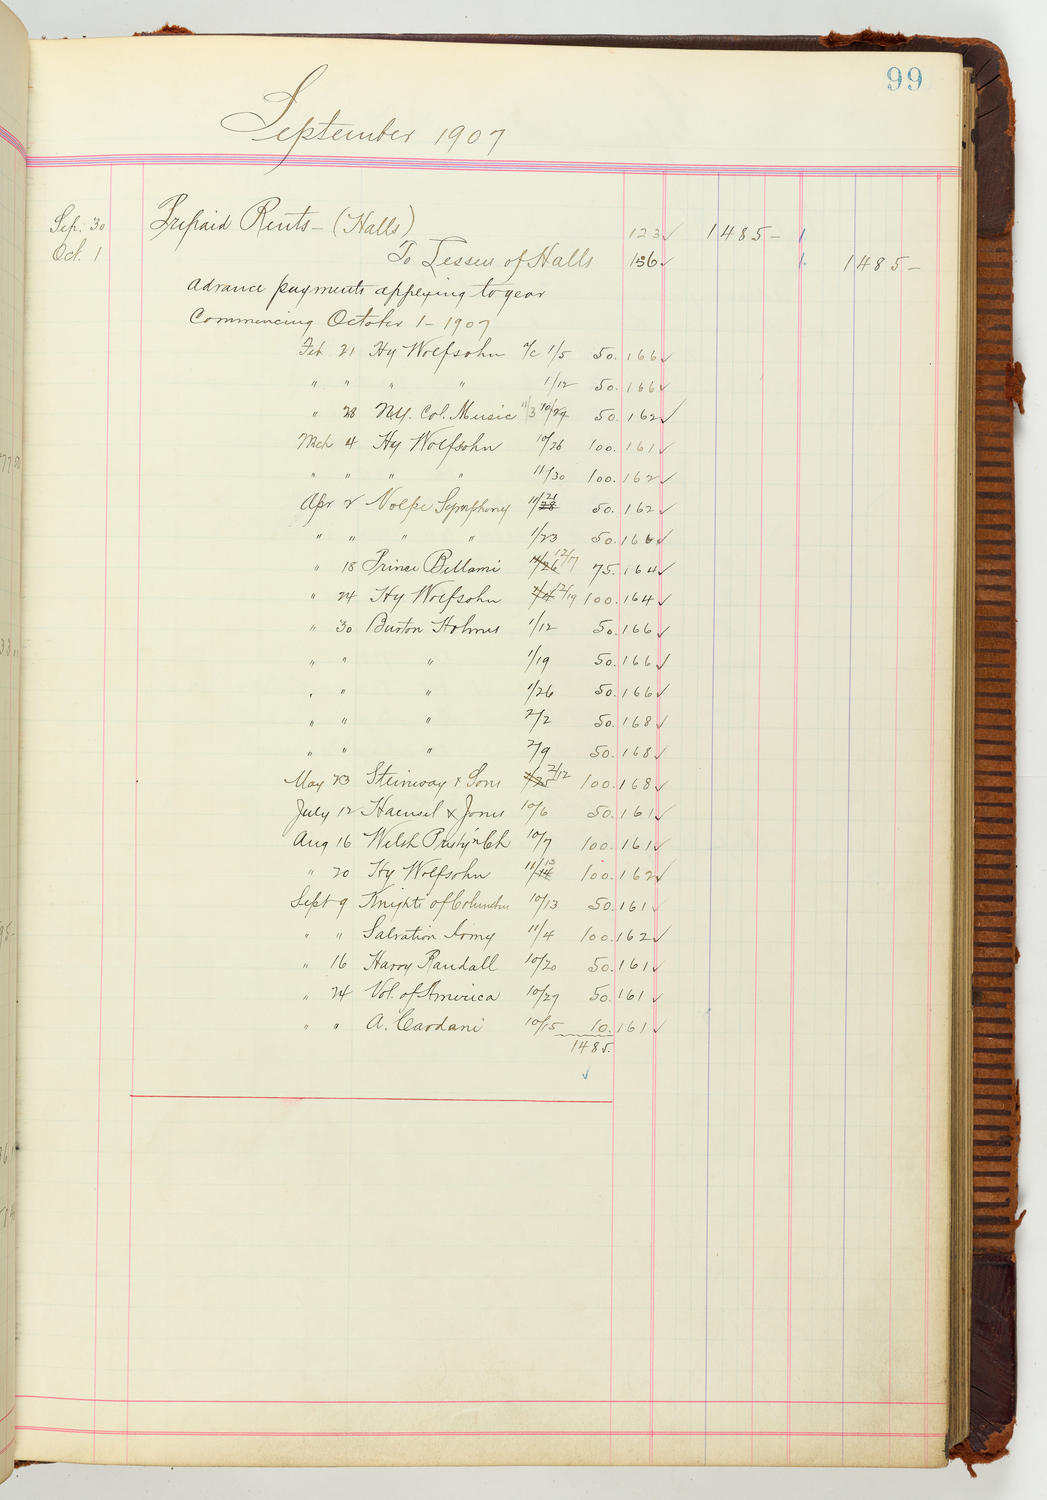 99
September 1907
Sep. 30 Prepaid Rents - (Halls) 123 ✓ 1485 -
Oct. 1 To Lessees of Halls 156 ✓ 1485 -
Advance payments applying to year
Commencing October 1 - 1907
Feb 21 Hy Wolfsohn a/c 1/5 50. 166 ✓
" " " " 1/12 50. 166 ✓
" 28 N.Y. Col. Music 11/3 10/29 50. 162 ✓
Mch 4 Hy Wolfsohn 10/26 100. 161 ✓
" " " " 11/30 100. 162 ✓
Apr 2 Volpe Symphony 11/28 21 50. 162 ✓
" " " " 1/23 50. 166 ✓
" 18 Prince Bellami 12/7 75. 164 ✓
" 24 Hy Wolfsohn 12/19 100. 164 ✓
" 30 Burton Holmes 1/12 50. 166 ✓
" " " 1/19 50. 166 ✓
" " " 1/26 50. 166 ✓
" " " 2/2 50. 168 ✓
" " " 2/9 50. 168 ✓
May 23 Steinway & Sons 2/12 100. 168 ✓
July 12 Haensel & Jones 10/6 50. 161 ✓
Aug 16 Welsh Presby'n Ch 10/7 100. 161 ✓
" 20 Hy Wolfsohn 11/14 13 100. 162 ✓
Sept 9 Knights of Columbus 10/13 50. 161 ✓
" " Salvation Army 11/4 100. 162 ✓
" 16 Harry Randall 10/20 50. 161 ✓
" 24 Vol. of America 10/27 50. 161 ✓
" " A. Cardani 10/15 10. 161 ✓
1485.
✓